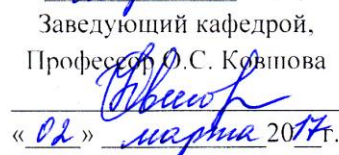 Заведующий кафедрой,
Профессор О.С. Ковшова
« 02 » марта 2017г.